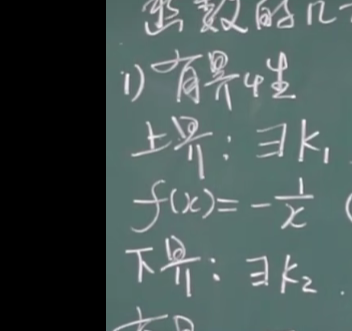 函数的几
1) 有界性
上界: ∃k₁
f(x)=-1/x (
下界: ∃k₂.